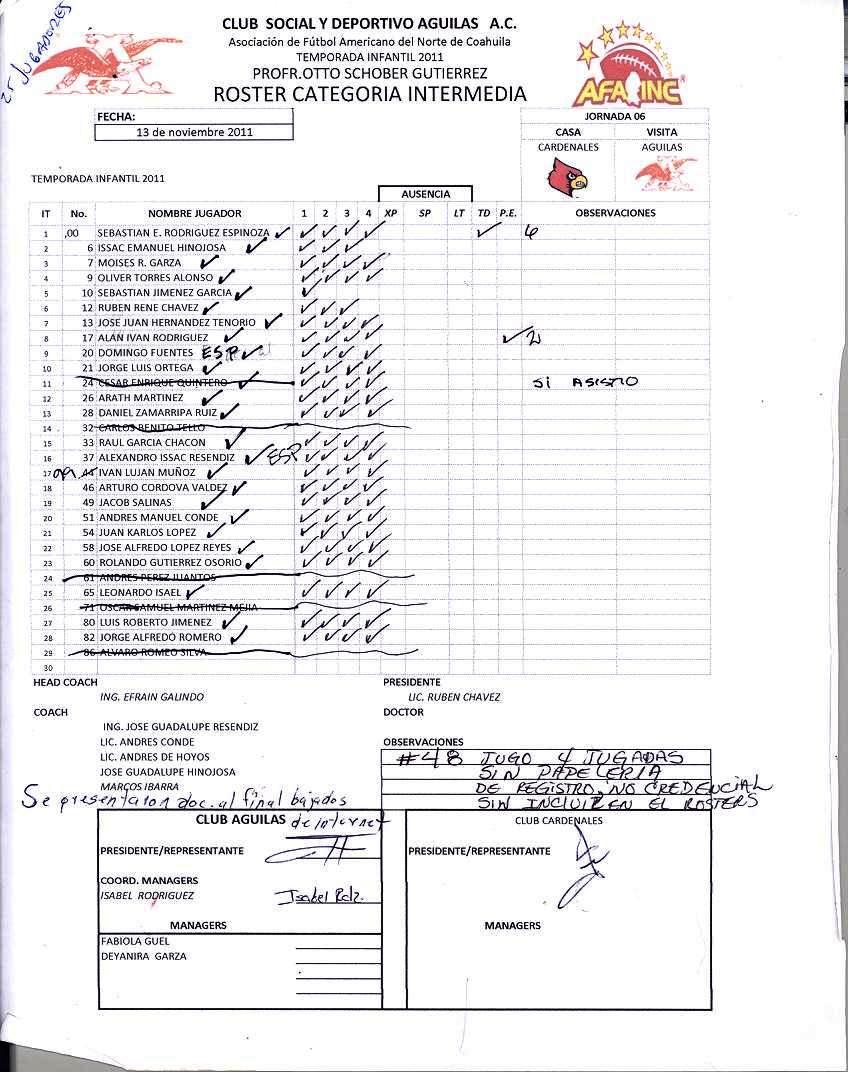 25 JUGADORES
CLUB SOCIAL Y DEPORTIVO AGUILAS A.C.
Asociación de Fútbol Americano del Norte de Coahuila
TEMPORADA INFANTIL 2011
PROFR.OTTO SCHOBER GUTIERREZ
ROSTER CATEGORIA INTERMEDIA
AFAINC
FECHA:
13 de noviembre 2011
JORNADA 06
CASA VISITA
CARDENALES AGUILAS
TEMPORADA INFANTIL 2011
AUSENCIA
IT No. NOMBRE JUGADOR 1 2 3 4 XP SP LT TD P.E. OBSERVACIONES
1 ,00 SEBASTIAN E. RODRIGUEZ ESPINOZA ✓ ✓ ✓ ✓ ✓ ✓ 6
2 6 ISSAC EMANUEL HINOJOSA ✓ ✓ ✓ ✓ ✓
3 7 MOISES R. GARZA ✓ ✓ ✓ ✓ ✓
4 9 OLIVER TORRES ALONSO ✓ ✓ ✓ ✓ ✓
5 10 SEBASTIAN JIMENEZ GARCIA ✓ ✓
6 12 RUBEN RENE CHAVEZ ✓ ✓ ✓ ✓
7 13 JOSE JUAN HERNANDEZ TENORIO ✓ ✓ ✓ ✓ ✓
8 17 ALAN IVAN RODRIGUEZ ✓ ✓ ✓ ✓ ✓ ✓ 2
9 20 DOMINGO FUENTES ESP ✓ ✓ ✓ ✓ ✓
10 21 JORGE LUIS ORTEGA ✓ ✓ ✓ ✓ ✓
11 24 CESAR ENRIQUE QUINTERO ✓ ✓ ✓ ✓ ✓ SI ASISTIO
12 26 ARATH MARTINEZ ✓ ✓ ✓ ✓ ✓
13 28 DANIEL ZAMARRIPA RUIZ ✓ ✓ ✓ ✓ ✓
14 32 CARLOS BENITO TELLO
15 33 RAUL GARCIA CHACON ✓ ✓ ✓ ✓ ✓
16 37 ALEXANDRO ISSAC RESENDIZ ✓ ESP ✓ ✓ ✓
17 44 IVAN LUJAN MUÑOZ ✓ ✓ ✓ ✓ ✓
18 46 ARTURO CORDOVA VALDEZ ✓ ✓ ✓ ✓ ✓
19 49 JACOB SALINAS ✓ ✓ ✓ ✓ ✓
20 51 ANDRES MANUEL CONDE ✓ ✓ ✓ ✓ ✓
21 54 JUAN KARLOS LOPEZ ✓ ✓ ✓ ✓ ✓
22 58 JOSE ALFREDO LOPEZ REYES ✓ ✓ ✓ ✓ ✓
23 60 ROLANDO GUTIERREZ OSORIO ✓ ✓ ✓ ✓ ✓
24 61 ANDRES PEREZ JUANTOS
25 65 LEONARDO ISAEL ✓ ✓ ✓ ✓ ✓
26 71 OSCAR SAMUEL MARTINEZ MEJIA
27 80 LUIS ROBERTO JIMENEZ ✓ ✓ ✓ ✓ ✓
28 82 JORGE ALFREDO ROMERO ✓ ✓ ✓ ✓ ✓
29 86 ALVARO ROMEO SILVA
30
HEAD COACH PRESIDENTE
ING. EFRAIN GALINDO LIC. RUBEN CHAVEZ
COACH DOCTOR
ING. JOSE GUADALUPE RESENDIZ
LIC. ANDRES CONDE OBSERVACIONES
LIC. ANDRES DE HOYOS #48 JUGO 4 JUGADAS
JOSE GUADALUPE HINOJOSA SIN PAPELERIA
MARCOS IBARRA DE REGISTRO, NO CREDENCIAL
Se presentaron doc. al final bajados SIN INCLUIR EN EL ROSTERS
CLUB AGUILAS de internet CLUB CARDENALES
PRESIDENTE/REPRESENTANTE PRESIDENTE/REPRESENTANTE
COORD. MANAGERS
ISABEL RODRIGUEZ Isabel Rdz.
MANAGERS MANAGERS
FABIOLA GUEL
DEYANIRA GARZA